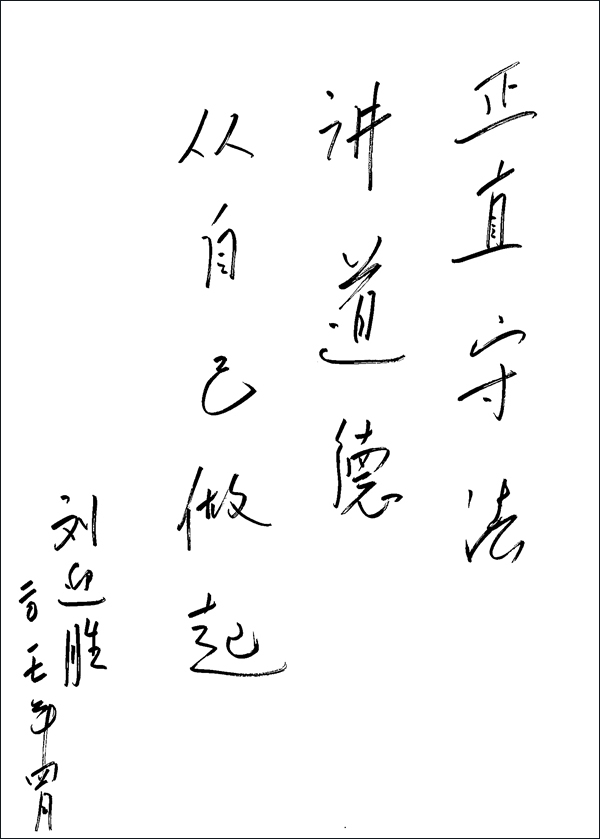 正直守法
讲道德
从自己做起
刘迎胜
二〇一七年四月